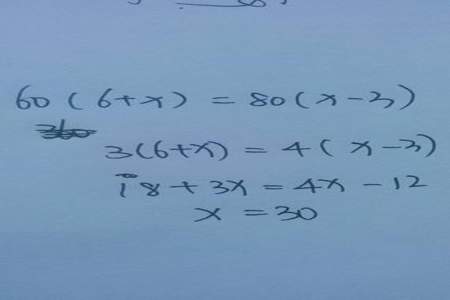 60(6+x) = 80(x-3)
3(6+x) = 4(x-3)
18+3x = 4x-12
x = 30